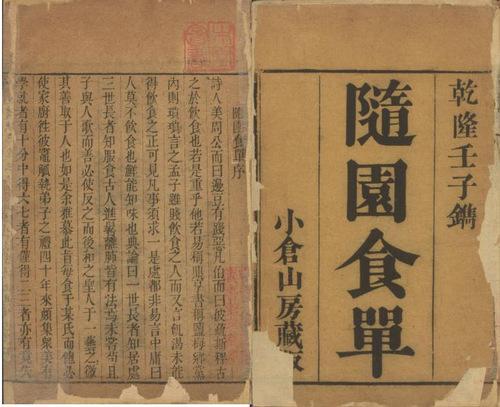 乾隆壬子鐫
隨園食單
小倉山房藏版
隨園食單序
詩人美周公而曰籩豆有踐惡凡伯而曰彼疏斯稗古
之於飲食也若是重乎他若易稱鼎烹書稱鹽梅鄉黨
內則瑣瑣言之孟子雖賤飲食之人而又言飢渴未能
得飲食之正可見凡事須求一是處都非易言中庸曰
人莫不飲食也鮮能知味也典論曰一世長者知居處
三世長者知服食古人進鬐離肺皆有法焉未嘗苟且
子與人歌而善必使反之而後和之聖人于一藝之微
其善取于人也如是余雅慕此旨每食于某氏而飽必
使家廚往彼竈觚執弟子之禮四十年來頗集眾美有
學就者有十分中得六七者有僅得二三者亦有竟失